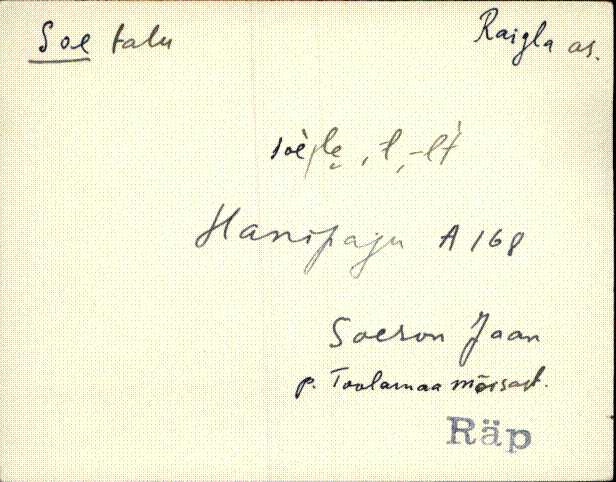 Soe talu
Raigla as.
, -t, -lt
Hanipaju A 168
Soeson Jaan
p. Toolamaa mõisast.
Räp